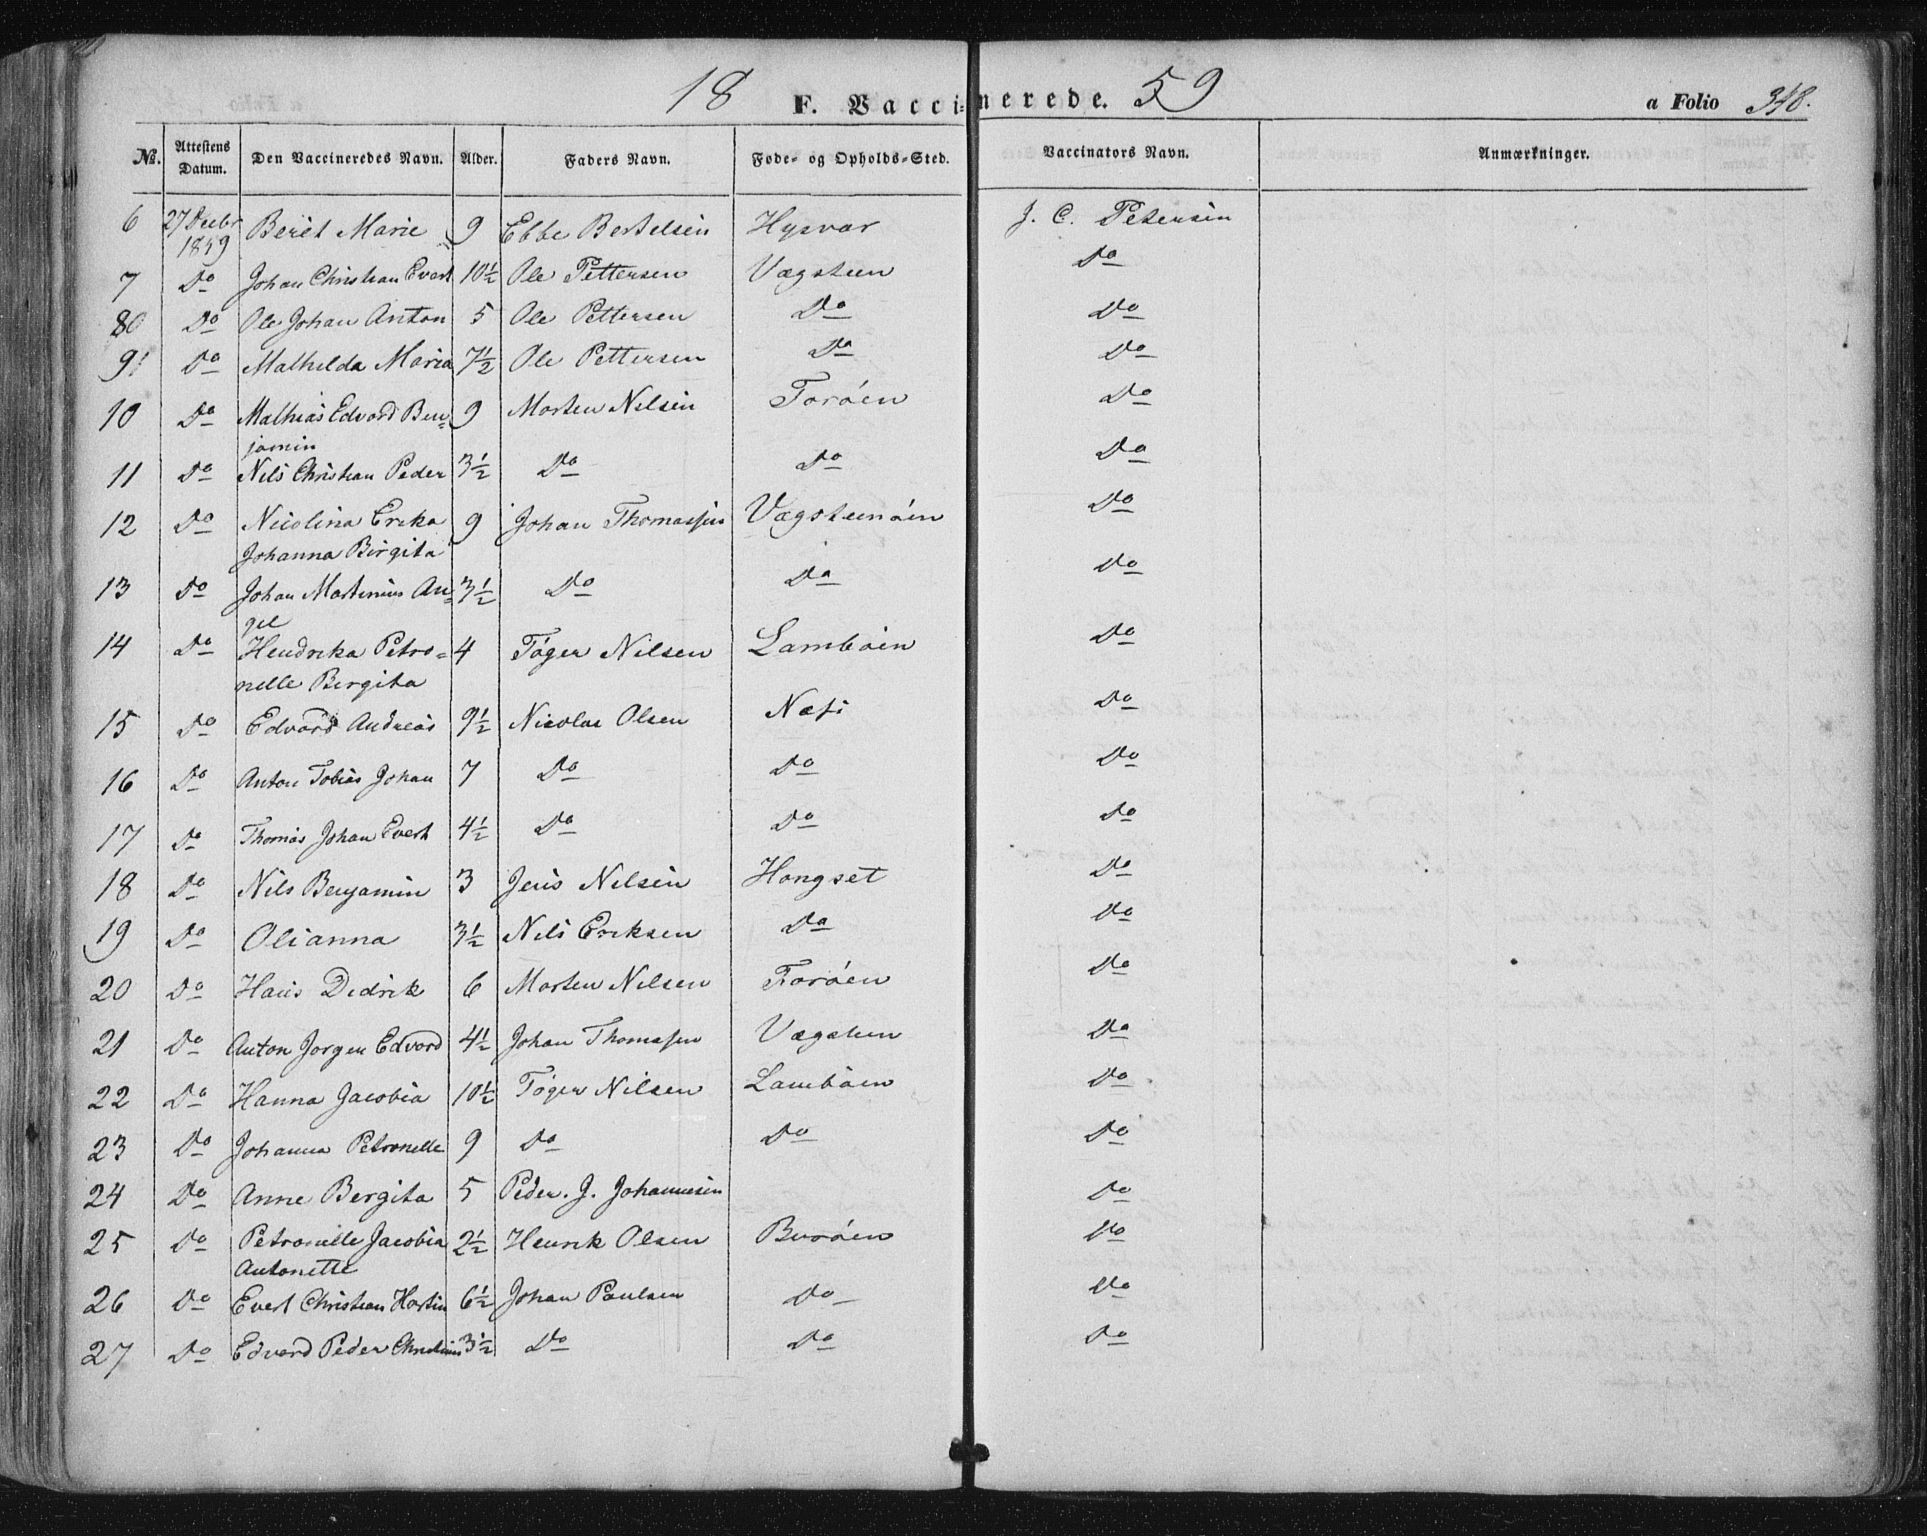 18 F. Vaccinerede. 59 a Folio 348.
No. Attestens Datum. Den Vaccineredes Navn. Alder. Faders Navn. Føde- og Opholds-Sted. Vaccinators Navn. Anmærkninger.
6 27 Decbr 1859 Berit Marie 9 Ebbe Bertelsen Hysvær J. C. Petersen
7 Do Johan Christian Evert 10½ Ole Pettersen Vægsteen Do
80 Do Ole Johan Anton 5 Ole Pettersen Do Do
9 Do Mathilda Maria 7½ Ole Pettersen Do Do
10 Do Mathias Edvard Ben- 9 Morten Nilsen Forøen Do
jamin
11 Do Nils Christian Peder 3½ Do Do Do
12 Do Nicolina Ereka 9 Johan Thomassen Vægsteenøen Do
Johanna Birgita
13 Do Johan Martinius An- 3½ Do Do Do
gel
14 Do Hendrika Petro- 4 Tøger Nilsen Lambøen Do
nelle Bergita
15 Do Edvard Andreas 9½ Nicolas Olsen Næss Do
16 Do Anton Tobias Johan 7 Do Do Do
17 Do Thomas Johan Evert 4½ Do Do Do
18 Do Nils Benjamin 3 Jens Nilsen Hongset Do
19 Do Olianna 3½ Nils Ereksen Do Do
20 Do Hans Didrik 6 Morten Nilsen Forøen Do
21 Do Anton Jørgen Edvard 4½ Johan Thomassen Vægsteen Do
22 Do Hanna Jacobia 10½ Tøger Nilsen Lambøen Do
23 Do Johanna Petronelle 9 Do Do Do
24 Do Anne Bergita 5 Peder. J. Johannesen Do
25 Do Petronelle Jacobia 2½ Henrik Olsen Burøen Do
Antonette
26 Do Evert Christian Hartin 6½ Johan Paulsen Do Do
27 Do Edvard Peder Christinus 3½ Do Do Do